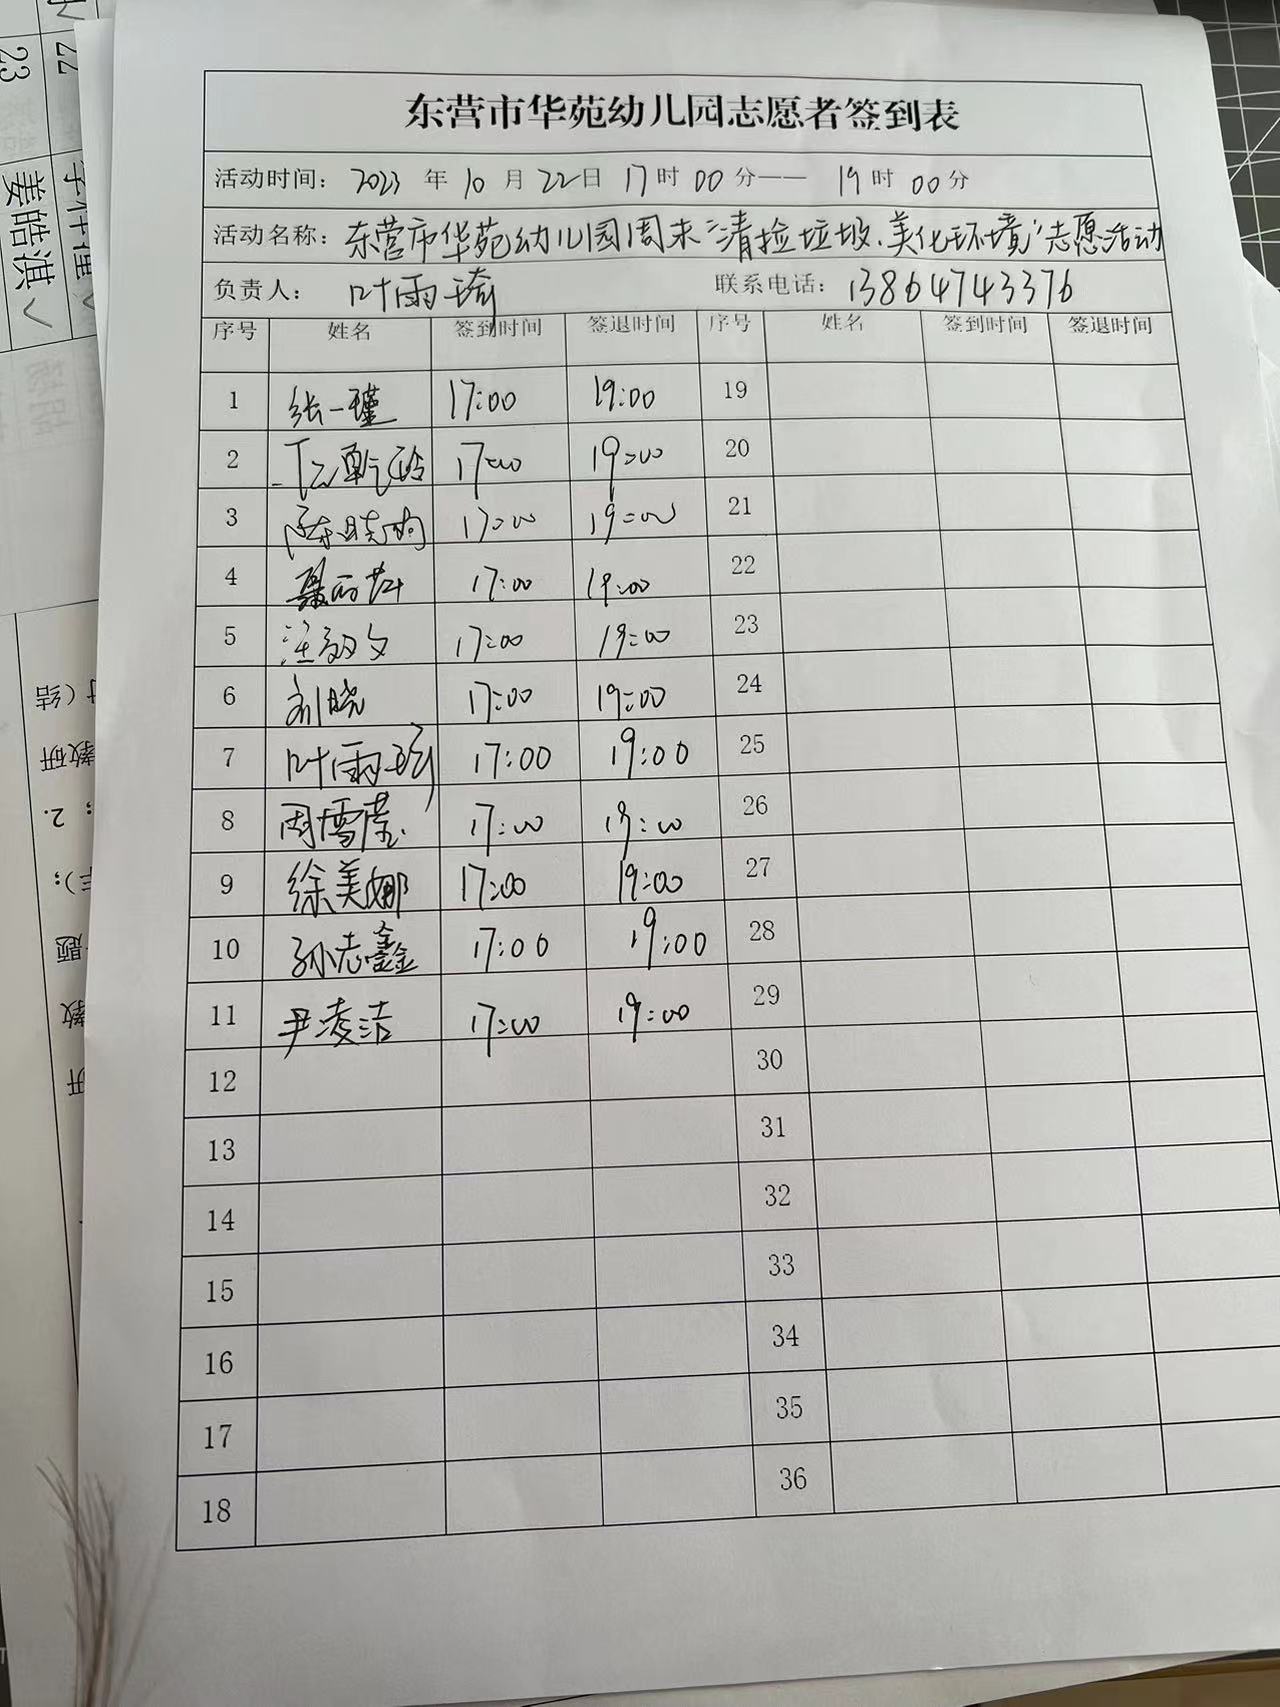 东营市华苑幼儿园志愿者签到表
活动时间：2023 年 10 月 22 日 17 时 00 分—— 19 时 00 分
活动名称：东营市华苑幼儿园周末“清捡垃圾、美化环境”志愿活动
负责人：叶雨琦 联系电话：13864743376
序号 姓名 签到时间 签退时间 序号 姓名 签到时间 签退时间
1 张一瑾 17:00 19:00 19
2 17:00 19:00 20
3 陈晓 17:00 19:00 21
4 17:00 19:00 22
5 17:00 19:00 23
6 刘晓 17:00 19:00 24
7 叶雨琦 17:00 19:00 25
8 周雪莹 17:00 19:00 26
9 徐美娜 17:00 19:00 27
10 孙志鑫 17:00 19:00 28
11 尹凌洁 17:00 19:00 29
12 30
13 31
14 32
15 33
16 34
17 35
18 36
22
23
姜皓淇 ✓
（结
教研
；2.
题
教
研